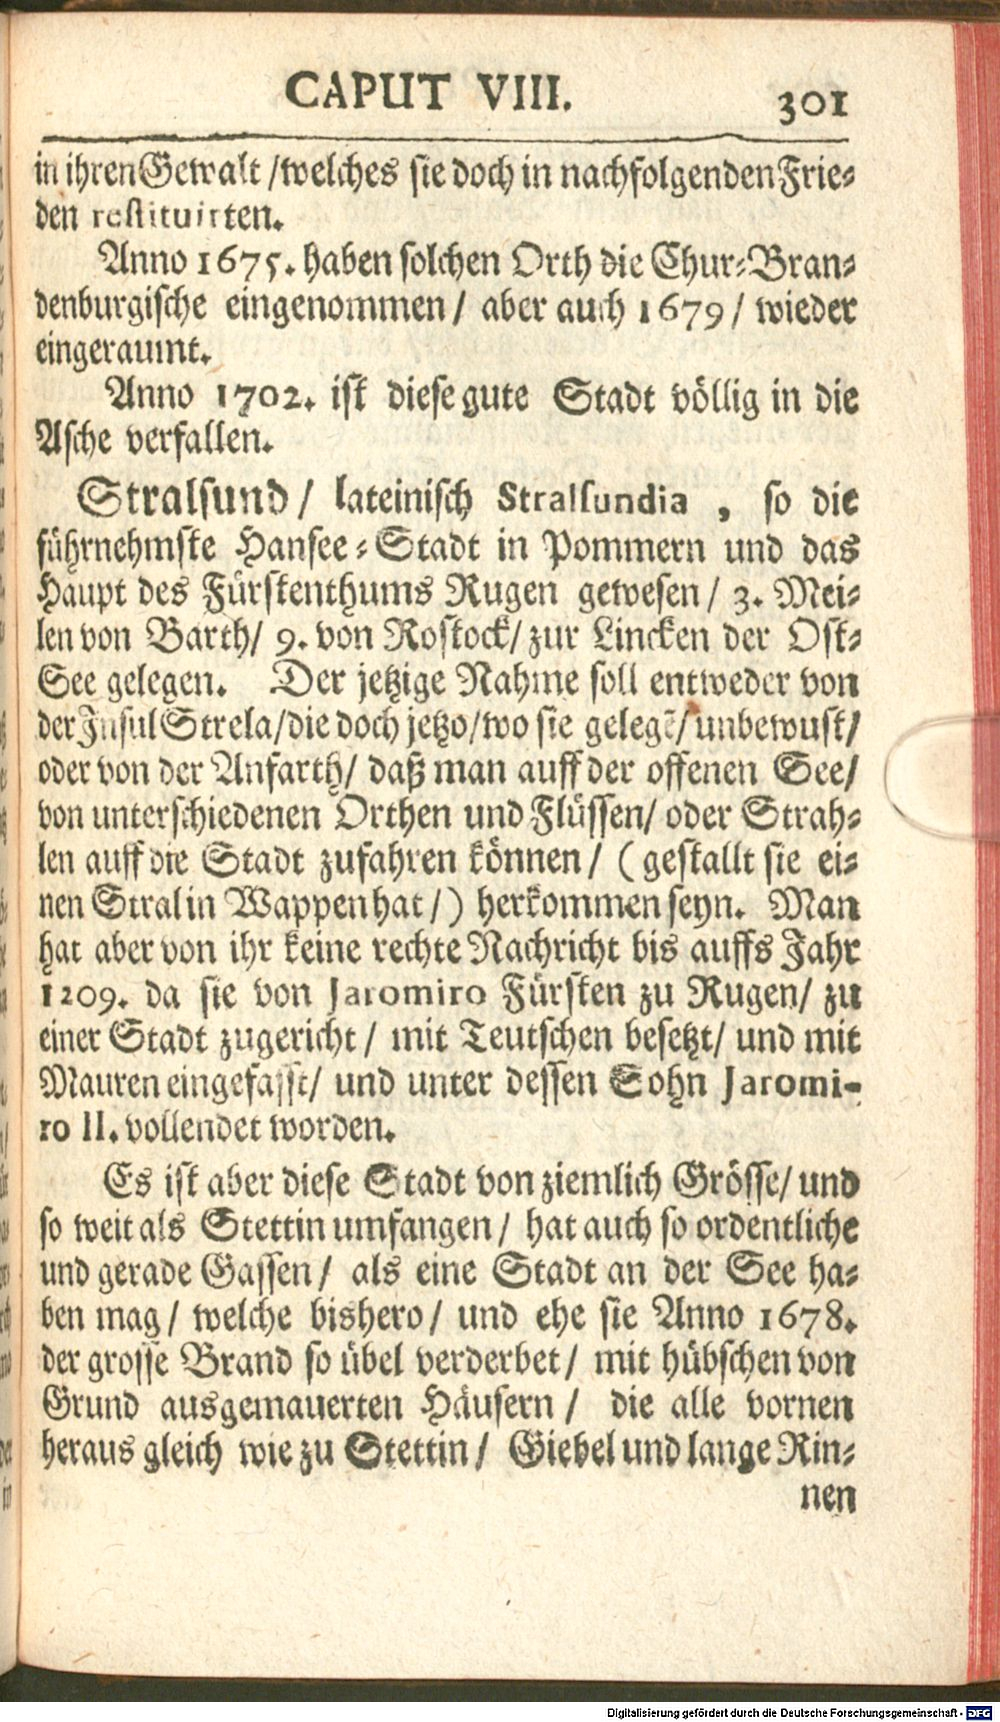 CAPUT VIII. 301
in ihren Gewalt / welches sie doch in nachfolgenden Frie-
den restituirten.
Anno 1675. haben solchen Orth die Chur-Bran-
denburgische eingenommen / aber auch 1679 / wieder
eingeraumt.
Anno 1702. ist diese gute Stadt völlig in die
Asche verfallen.
Stralsund / lateinisch Stralsundia , so die
führnehmste Hansee-Stadt in Pommern und das
Haupt des Fürstenthums Rugen gewesen / 3. Mei-
len von Barth / 9. von Rostock / zur Lincken der Ost-
See gelegen. Der jetzige Nahme soll entweder von
der Insul Strela / die doch jetzo / wo sie gelegē / unbewust /
oder von der Anfarth / daß man auff der offenen See /
von unterschiedenen Orthen und Flüssen / oder Strah-
len auff die Stadt zufahren können / ( gestallt sie ei-
nen Stral in Wappen hat / ) herkommen seyn. Man
hat aber von ihr keine rechte Nachricht bis auffs Jahr
1209. da sie von Jaromiro Fürsten zu Rugen / zu
einer Stadt zugericht / mit Teutschen besetzt / und mit
Mauren eingefasst / und unter dessen Sohn Jaromi-
ro II. vollendet worden.
Es ist aber diese Stadt von ziemlich Grösse / und
so weit als Stettin umfangen / hat auch so ordentliche
und gerade Gassen / als eine Stadt an der See ha-
ben mag / welche bishero / und ehe sie Anno 1678.
der grosse Brand so übel verderbet / mit hübschen von
Grund ausgemauerten Häusern / die alle vornen
heraus gleich wie zu Stettin / Giebel und lange Rin-
nen
Digitalisierung gefördert durch die Deutsche Forschungsgemeinschaft - DFG